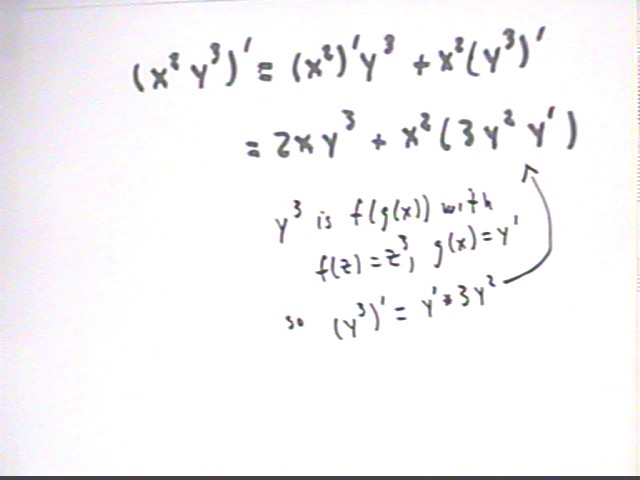 (x² y³)' = (x²)'y³ + x²(y³)'
= 2xy³ + x²(3y² y')
y³ is f(g(x)) with
f(z) = z³, g(x) = y'
so (y³)' = y' * 3y²